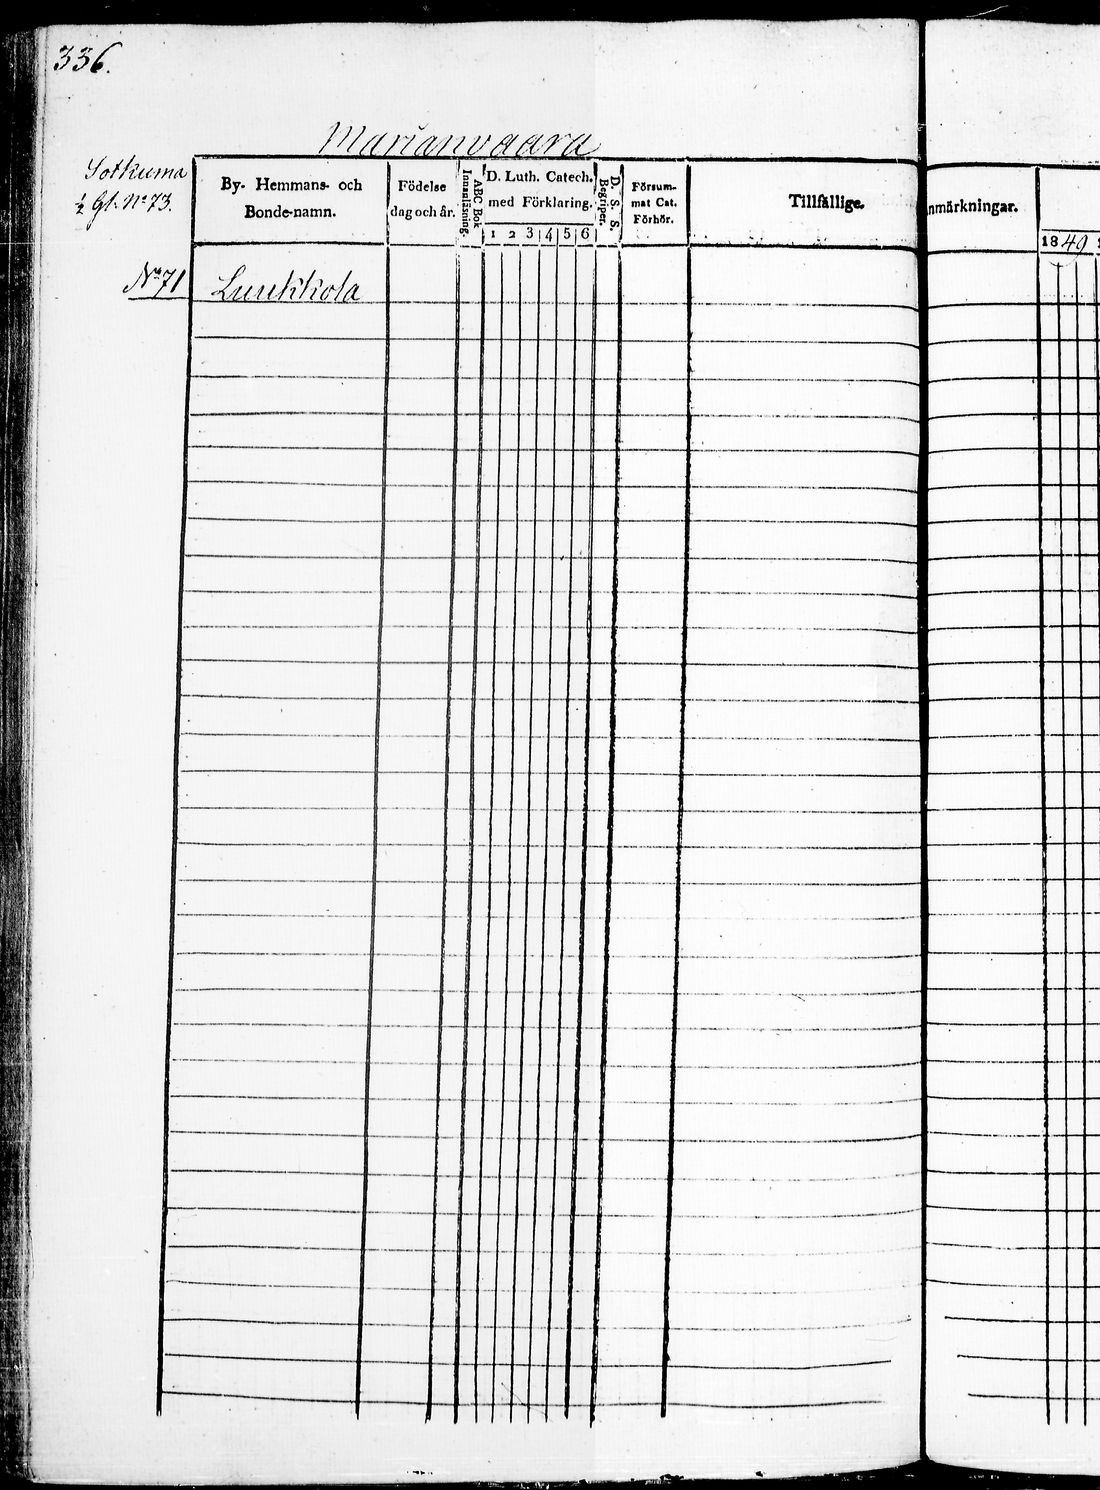 336.
Marianvaara
Sotkuma
½ Gl. No 73.
By- Hemmans- och
Bonde-namn.
Födelse
dag och år.
ABC Bok
Innanläsning.
D. Luth. Catech.
med Förklaring.
1 2 3 4 5 6
D. S. S.
Begriper.
Försum-
mat Cat.
Förhör.
Tillfällige.
nmärkningar.
1849
No 71 Luukkola